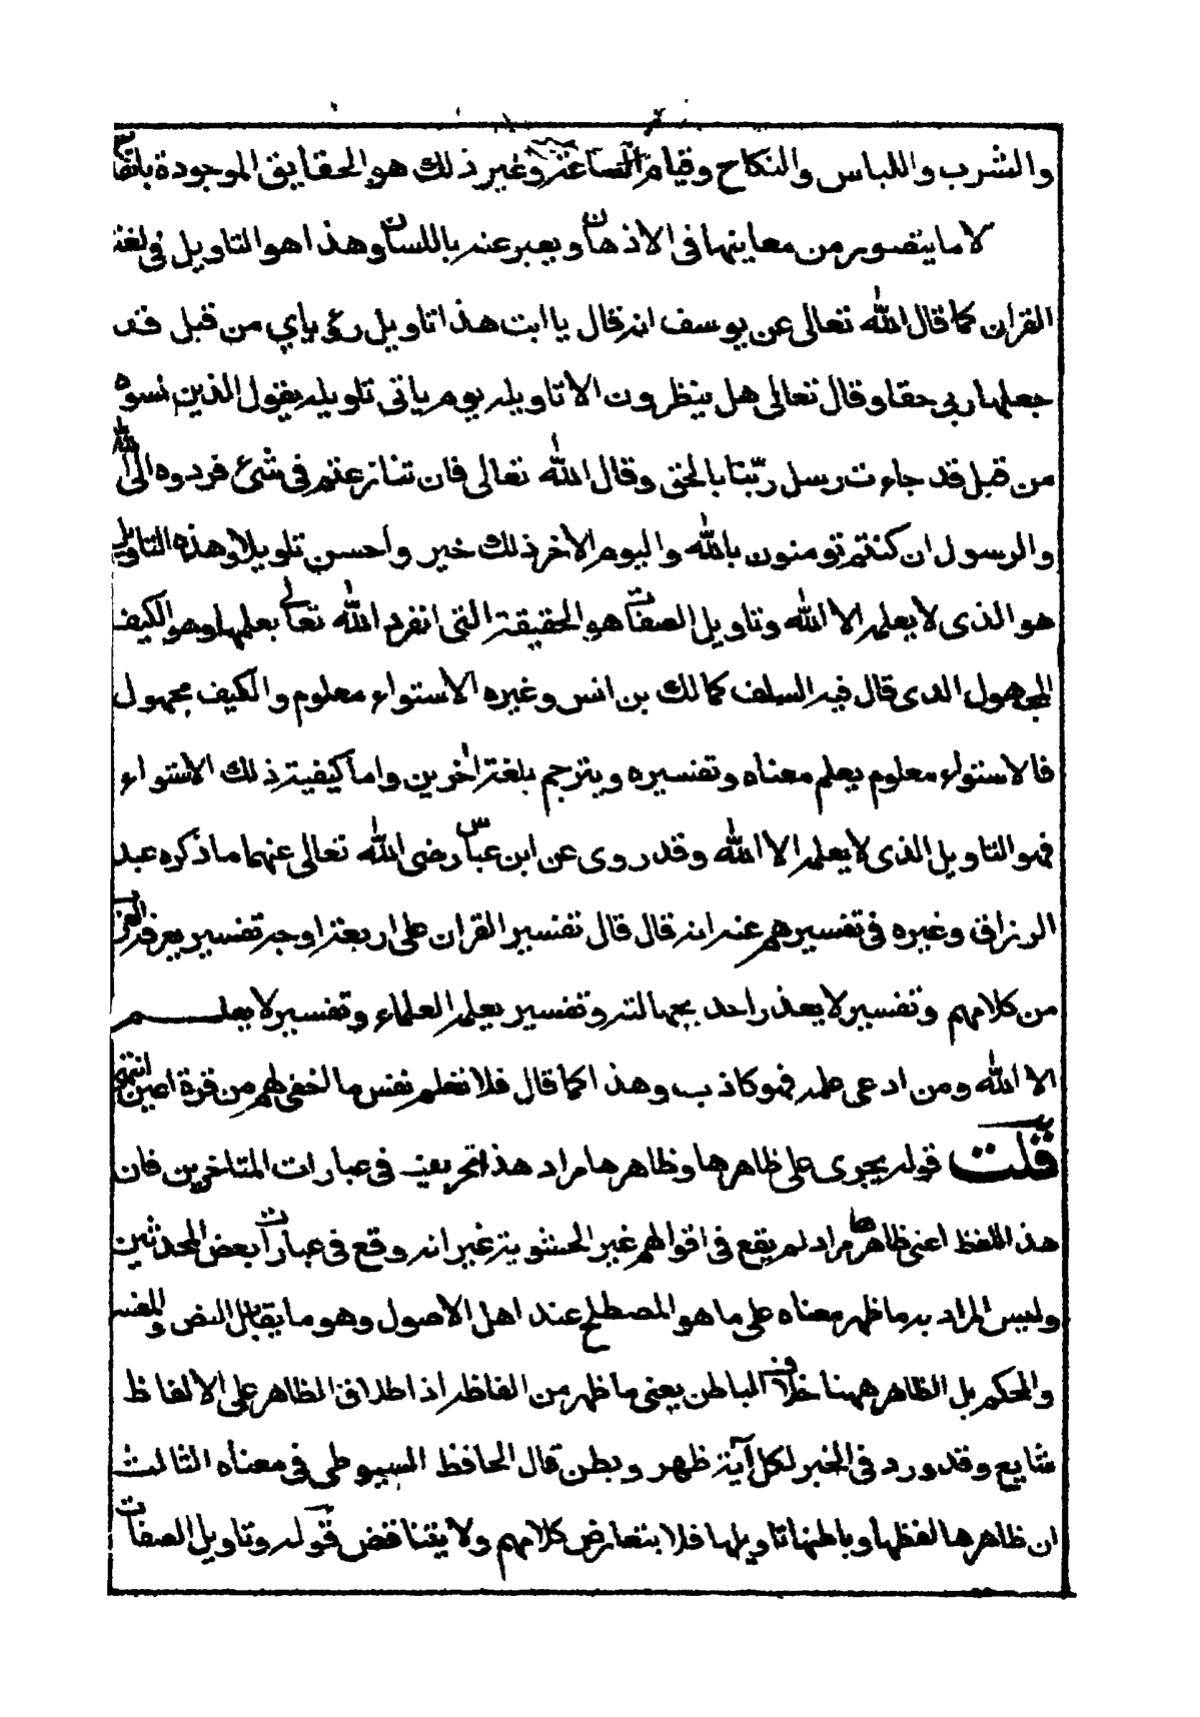 والشرب واللباس والنكاح وقيام الساعة وغير ذلك هو الحقايق الموجودة بانفسها
لا ما يتصور من معاينها فى الاذهان ويعبر عنه باللسان وهذا هو التاويل فى لغة
القران كما قال الله تعالى عن يوسف انه قال يا ابت هذا تاويل رءياي من قبل قد
جعلها ربى حقا وقال تعالى هل ينظرون الا تاويله يوم ياتى تاويله يقول الذين نسوه
من قبل قد جاءت رسل ربّنا بالحق وقال الله تعالى فان تنازعتم فى شئ فردوه الى الله
والرسول ان كنتم تومنون بالله واليوم الاخر ذلك خير واحسن تاويلا وهذه التاويل
هو الذى لا يعلمه الا الله وتاويل الصفات هو الحقيقة التى انفرد الله تعالى بعلمها وهو الكيف
المجهول الذى قال فيه السلف كمالك بن انس وغيره الاستواء معلوم والكيف مجهول
فالاستواء معلوم يعلم معناه وتفسيره ويترجم بلغة اخرين واما كيفية ذلك الاستواء
فهو التاويل الذى لا يعلمه الا الله وقد روى عن ابن عباس رضى الله تعالى عنهما ما ذكره عبد
الرزاق وغيره فى تفسيرهم عنه انه قال قال تفسير القران على اربعة اوجه تفسير يعرفه العرب
من كلامهم وتفسير لا يعذر احد بجهالته وتفسير يعلمه العلماء وتفسير لا يعلم
الا الله ومن ادعى علمه فهو كاذب وهذا كما قال فلا تعلم نفس ما اخفى لهم من قرة اعين انتهى
قلت قوله يجرى على ظاهرها وظاهرها مراد هذا تحريف فى عبارات المتاخرين فان
هذا اللفظ اعنى ظاهرها مراد لم يقع فى اقوالهم غير الحشوية غير انه وقع فى عبارات بعض المحدثين
وليس المراد به ما ظهر معناه على ما هو المصطلح عند اهل الاصول وهو ما يقابل النص والمفسر
والمحكم بل الظاهر ههنا خلاف الباطن يعنى ما ظهر من الفاظه اذ اطلاق الظاهر على الالفاظ
شايع وقد ورد فى الخبر لكل آية ظهر وبطن قال الحافظ السيوطى فى معناه الثالث
ان ظاهرها لفظها وباطنها تاويلها فلا يتعارض كلامهم ولا يتناقض قوله وتاويل الصفات